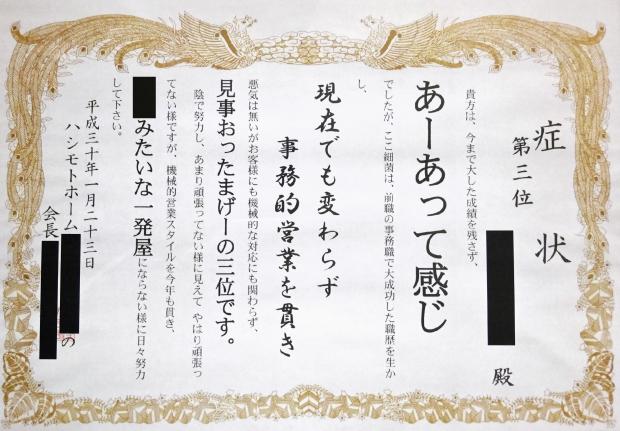 症状
第三位
殿
貴方は、今まで大した成績を残さず、
あーあって感じ
でしたが、ここ細菌は、前職の事務職で大成功した職歴を生か
し、
現在でも変わらず
事務的営業を貫き
悪気は無いがお客様にも機械的な対応にも関わらず、
見事おったまげーの三位です。
陰で努力し、あまり頑張ってない様に見えて やはり頑張っ
てない様ですが、機械的営業スタイルを今年も貫き、
みたいな一発屋にならない様に日々努力
して下さい。
平成三十年一月二十三日
ハシモトホーム
会長
の